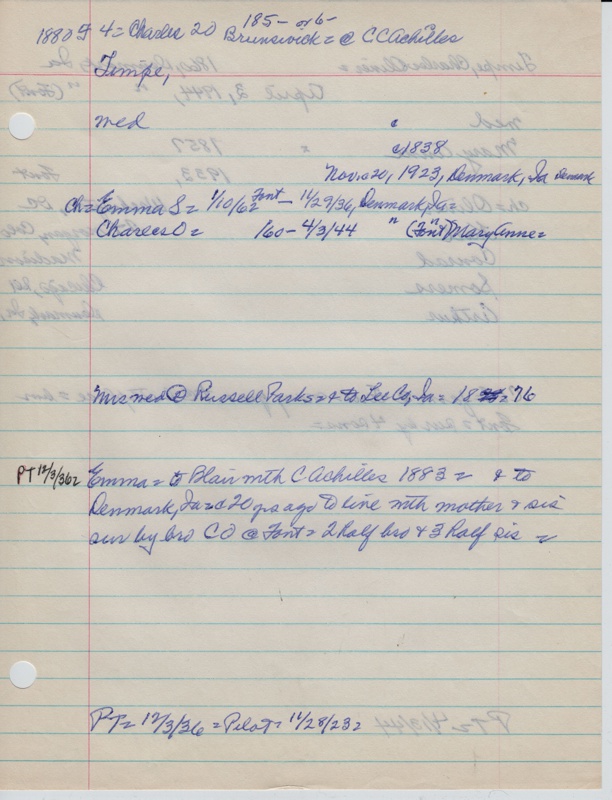 185- or 6-
1880 F 4 = Charles 20 Brunswick = @ C C Achilles
Timpe,
med c
c 1838
Nov. 20, 1923, Denmark, Ia Denmark
ch = Emma S = 1/10/62 Font - 11/29/36, Denmark, Ia =
Charles O = /60 - 4/3/44 " (Font) " Mary Anne =
Mrs med @ Russell Parks = & to Lee Co, Ia = 18 = 76
PT 12/3/36 = Emma = to Blair mth C Achilles 1883 = & to
Denmark, Ia = c 20 yrs ago to live mth mother & sis
sur by bro C O @ Font = 2 half bro & 3 half sis =
PT = 12/3/36 = Pilot = 11/28/23 =